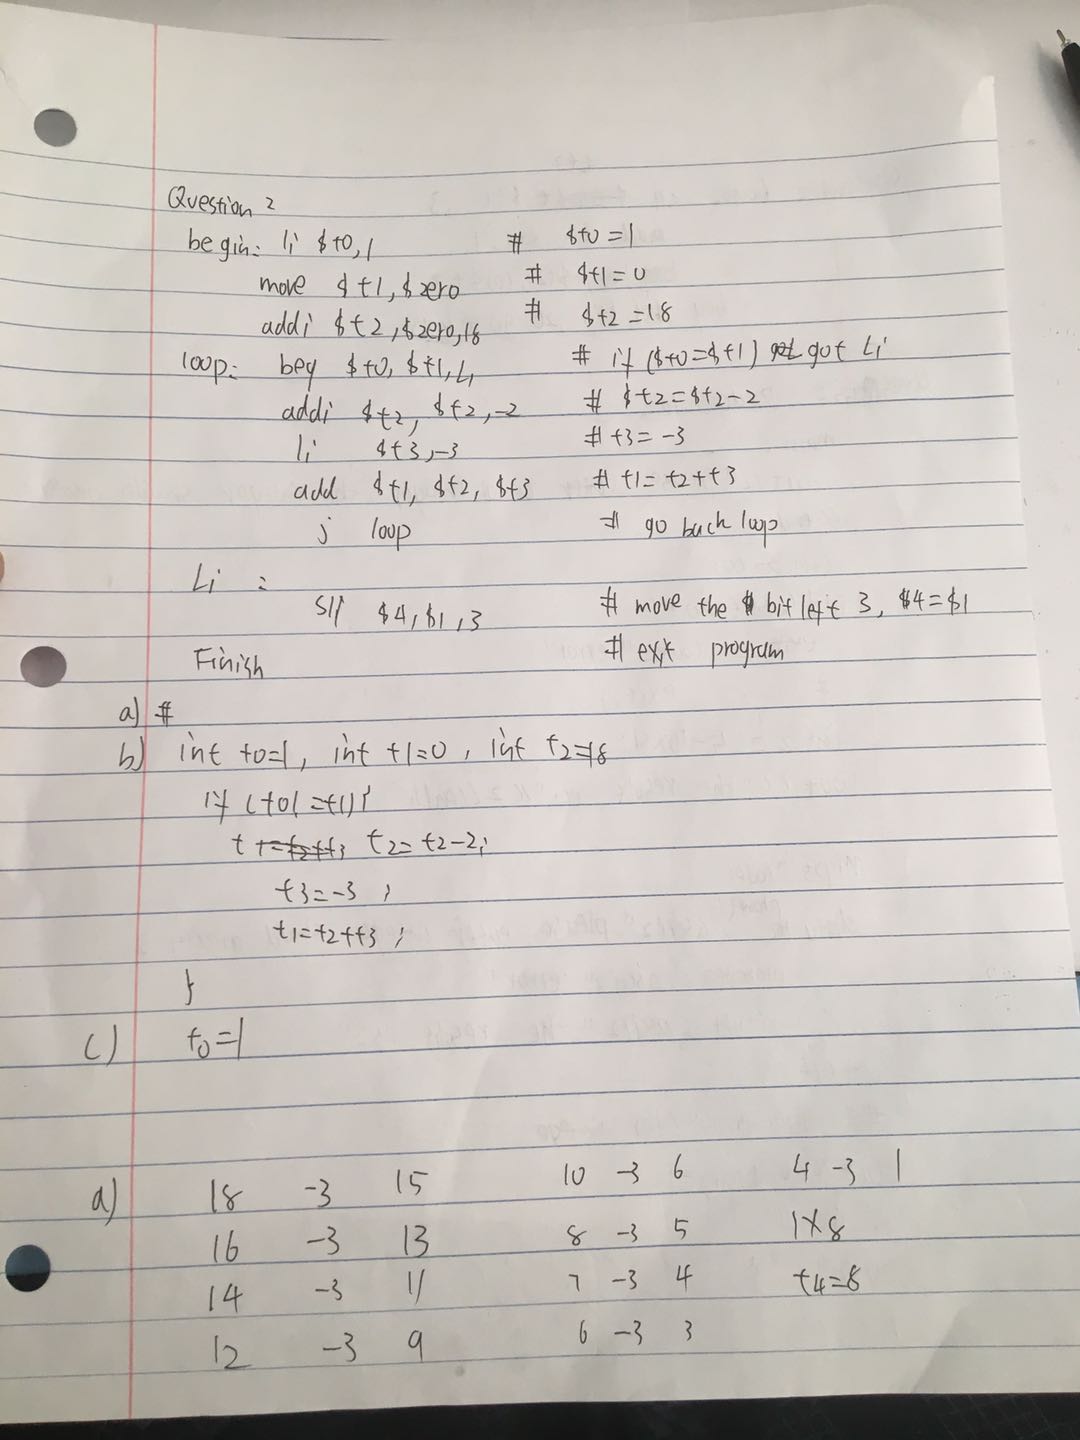 Question 2
begin: li $t0,1 # $t0=1
move $t1,$zero # $t1=0
addi $t2,$zero,18 # $t2=18
loop: beq $t0,$t1,L1 # if ($t0=$t1) got Li
addi $t2, $t2,-2 # $t2=$t2-2
li $t3,-3 # t3=-3
add $t1, $t2, $t3 # t1=t2+t3
j loop # go back loop
Li :
sll $4,$1,3 # move the bit left 3, $4=$1
Finish # exit program
a) #
b) int t0=1, int t1=0, int t2=18
if (t0!=t1){
t1=t2+t3 t2=t2-2;
t3=-3;
t1=t2+t3;
}
c) t0=1
d) 18 -3 15 10 -3 6 4 -3 1
16 -3 13 8 -3 5 1x8
14 -3 11 7 -3 4 t4=8
12 -3 9 6 -3 3